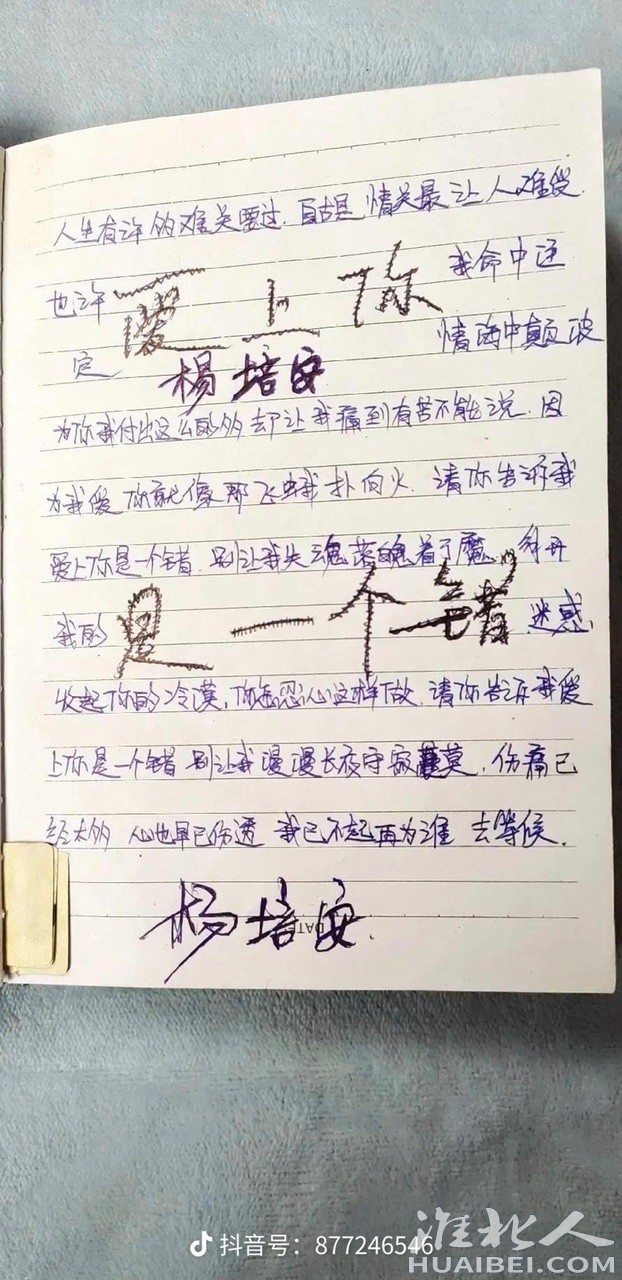 人生有许多难关要过.自古是 情关最让人难受.
也许 爱上你 我命中注
定 杨培安 情海中颠波
为你我付出这么的多 却让我痛到有苦不能说.因
为我爱你就像那飞蛾扑向火.请你告诉我
爱上你是一个错.别让我失魂落魄着了魔.解开
我的 是一个错 迷惑.
收起你的冷漠,你怎忍心这样做.请你告诉我爱
上你是一个错 别让我漫漫长夜守寂寞.伤痛已
经太多 心也早已伤透 我已不起再为谁 去等候.
杨培安
DATE
抖音号:877246546
淮北人
HUAIBEI.COM